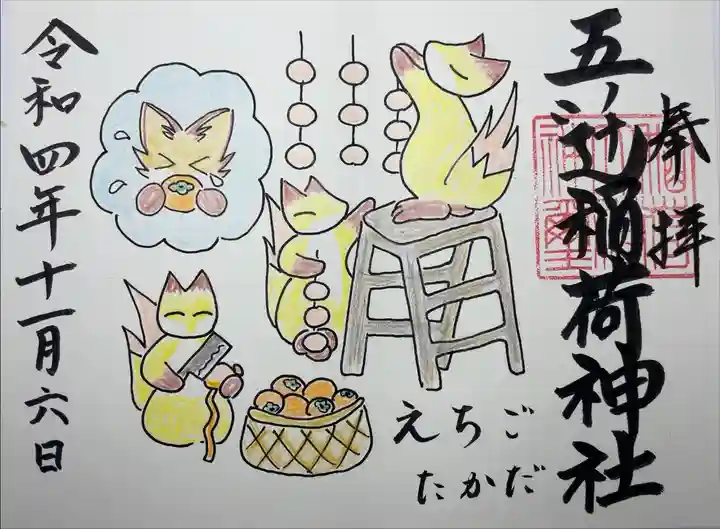 奉拝
五ノ辻稲荷神社
えちご
たかだ
令和四年十一月六日